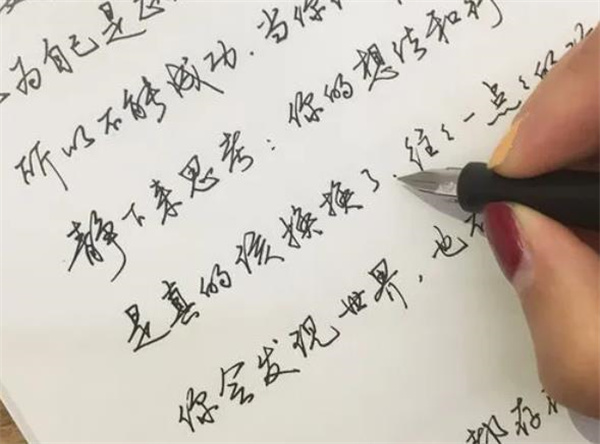 为自己是
所以不能成功.当你
静下来思考:你的想法和行
是真的该换换了.往往一点点的改
你会发现世界,也
都存